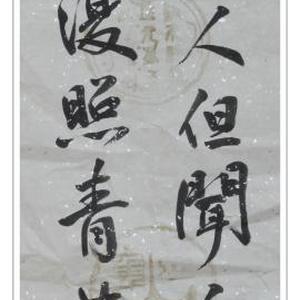 人但聞
復照青